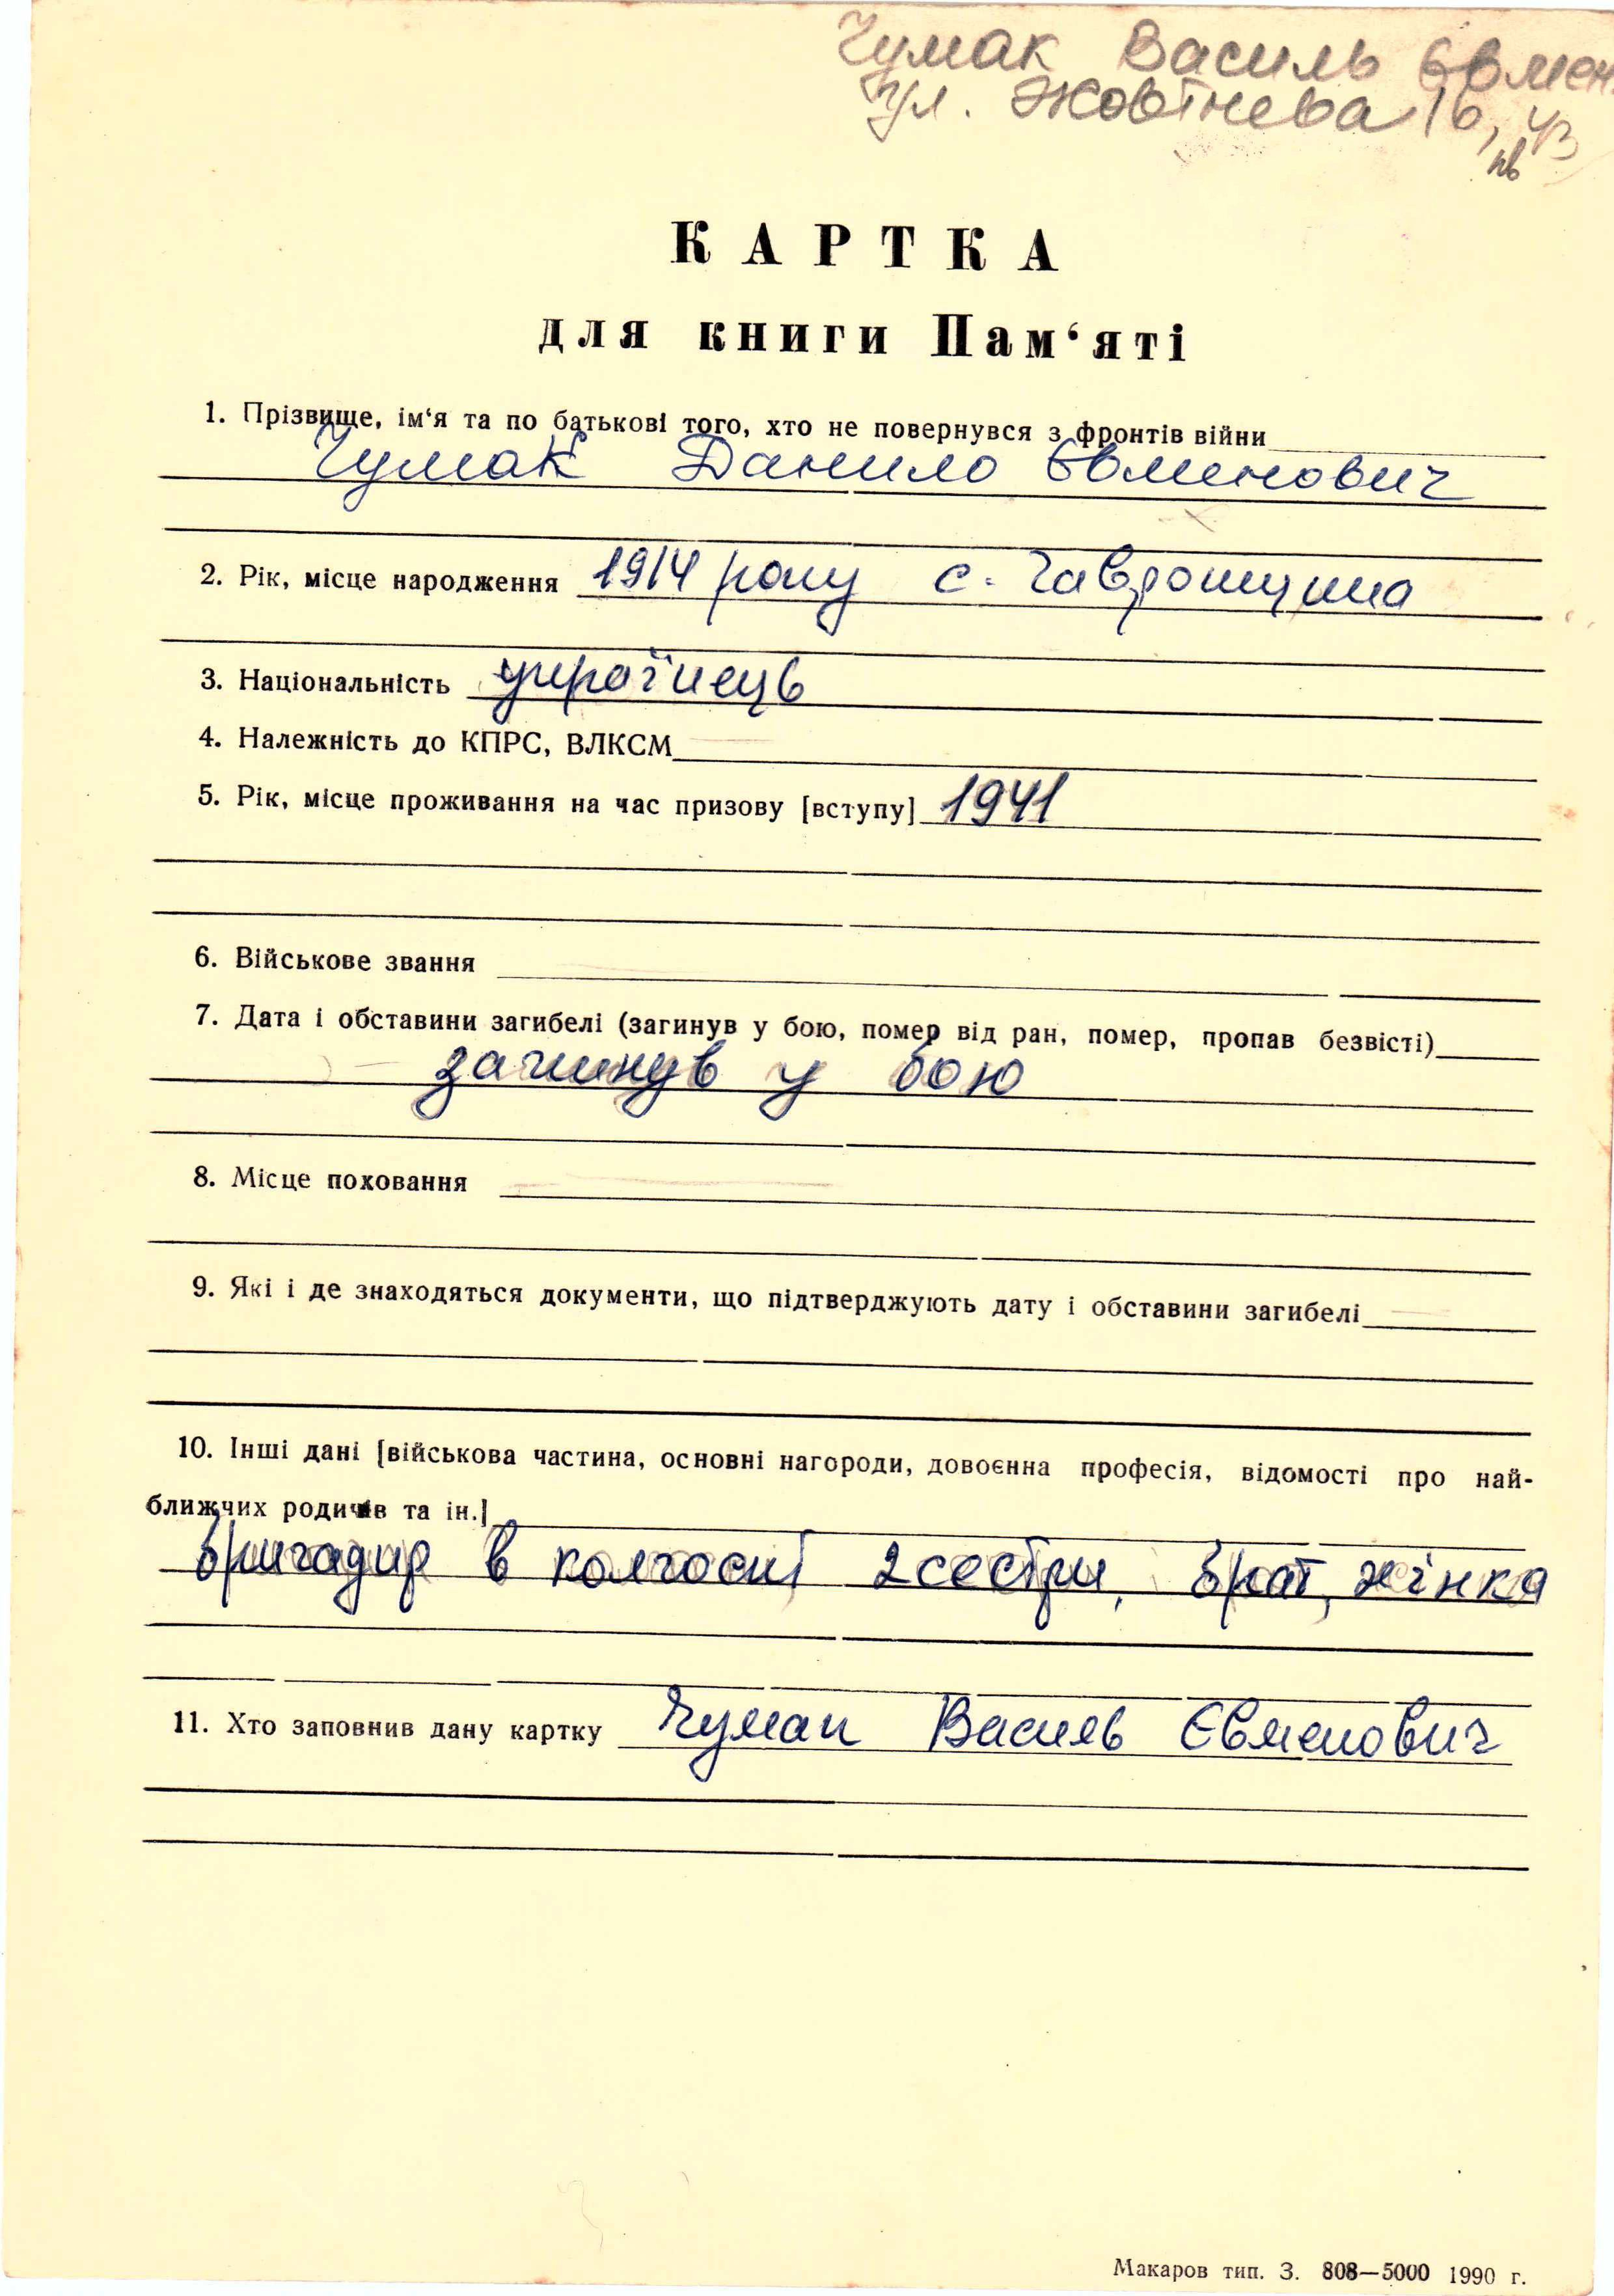 Чумак Василь Євмен.
ул. Жовтнева 16, кв
К А Р Т К А
для книги Пам‘яті
1. Прізвище, ім‘я та по батькові того, хто не повернувся з фронтів війни
Чумак Данило Євменович
2. Рік, місце народження 1914 року с. Гавронщина
3. Національність українець
4. Належність до КПРС, ВЛКСМ
5. Рік, місце проживання на час призову [вступу] 1941
6. Військове звання
7. Дата і обставини загибелі (загинув у бою, помер від ран, помер, пропав безвісті)
загинув у бою
8. Місце поховання
9. Які і де знаходяться документи, що підтверджують дату і обставини загибелі
10. Інші дані [військова частина, основні нагороди, довоєнна професія, відомості про най-
ближчих родичів та ін.]
бригадир в колгоспі 2 сестри, брат, жінка
11. Хто заповнив дану картку Чумак Василь Євменович
Макаров тип. З. 808—5000 1990 г.